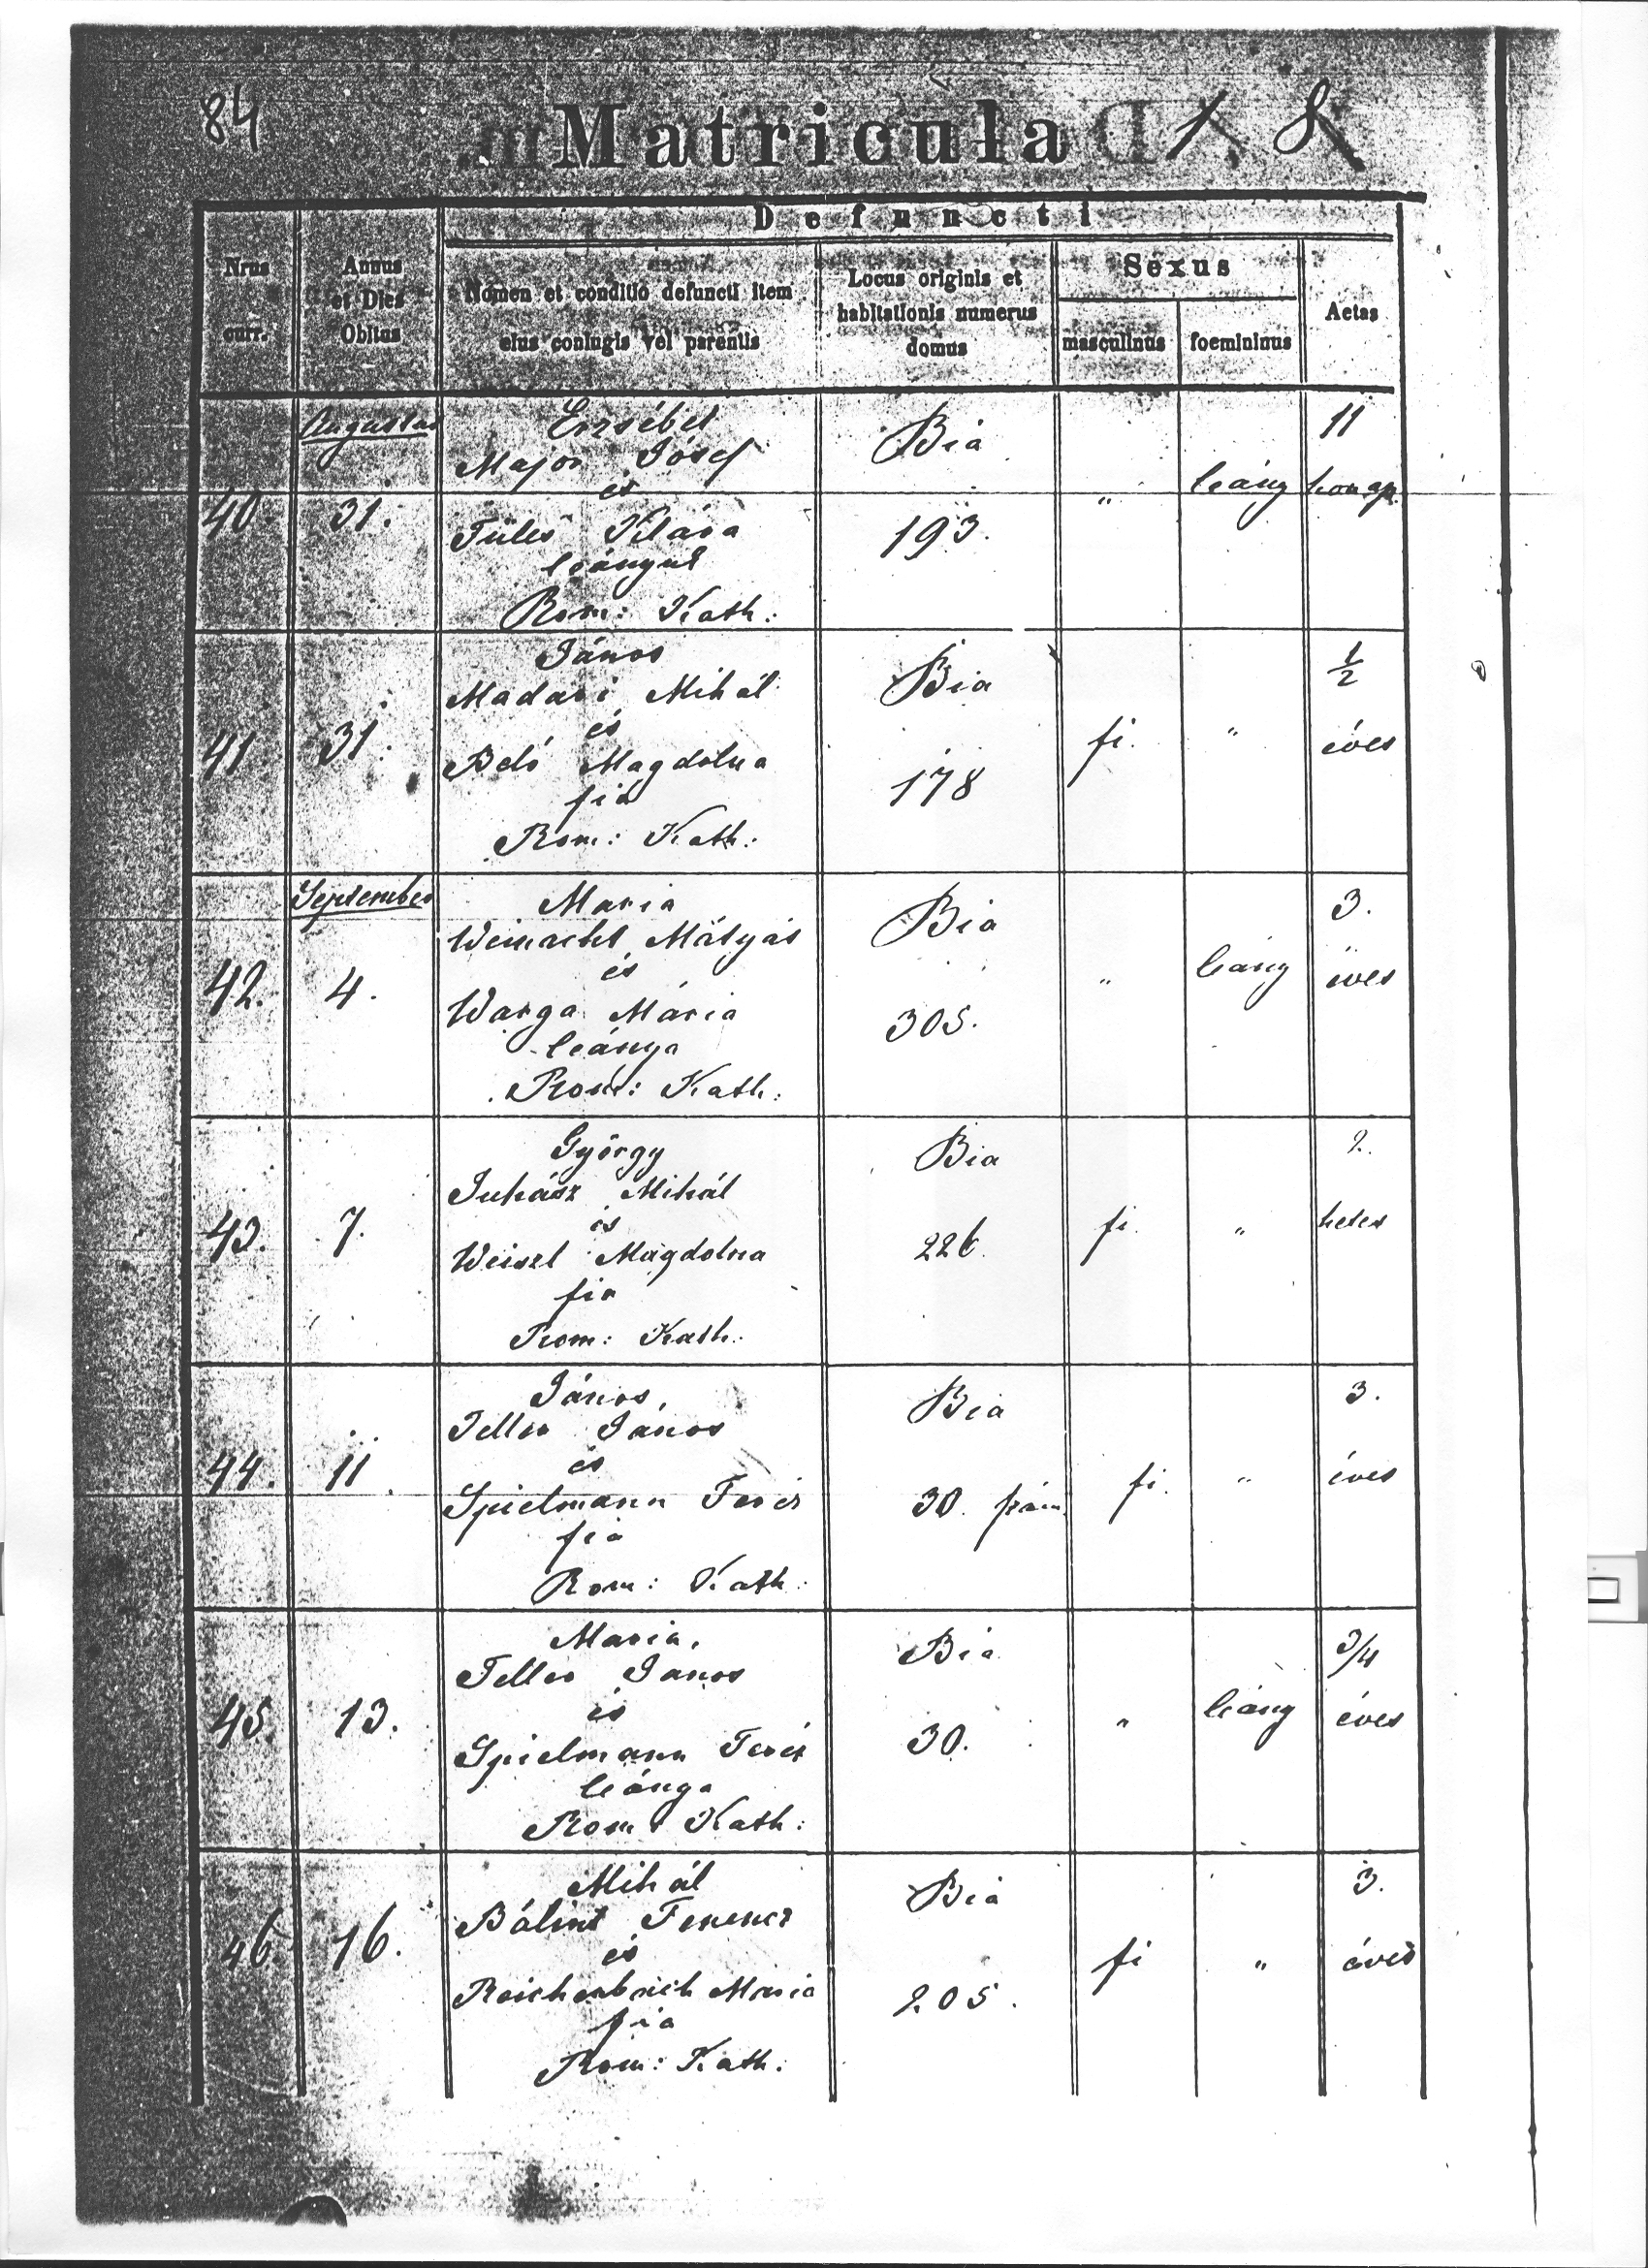 84
Matricula
Defuncti
Nrus
curr.
Annus
et Dies
Obitus
Nomen et conditio defuncti item
eius coniugis vel parentis
Locus originis et
habitationis numerus
domus
Sexus
masculinus
foemininus
Aetas
Augustus
Erzsébet
Major Jósef
és
Klára
leányuk
Rom: Kath:
40
31.
Bia
193.
"
leány
11
János
Madari Mihál
és
Magdolna
fia
Rom: Kath:
41
31.
Bia
178
fi.
"
1/2
éves
September
Maria
Weinacht Mátyás
és
Warga Mária
leánya
Rom: Kath:
42.
4.
Bia
305.
"
leány
3.
éves
György
Juhász Mihál
és
Weiszl Magdolna
fia
Rom: Kath:
43.
7.
Bia
226.
fi.
"
2.
hetes
János,
Teller János
és
Spielmann Teréz
fia
Rom: Kath:
44.
11.
Bia
30. szám
fi.
"
3.
éves
Maria,
Teller János
és
Spielmann Teréz
leánya
Rom: Kath:
45.
13.
Bia
30.
"
leány
3/4
éves
Mihál
Bálint Ferencz
és
Reichenbach Maria
fia
Rom: Kath:
46.
16.
Bia
205.
fi
"
3.
éves